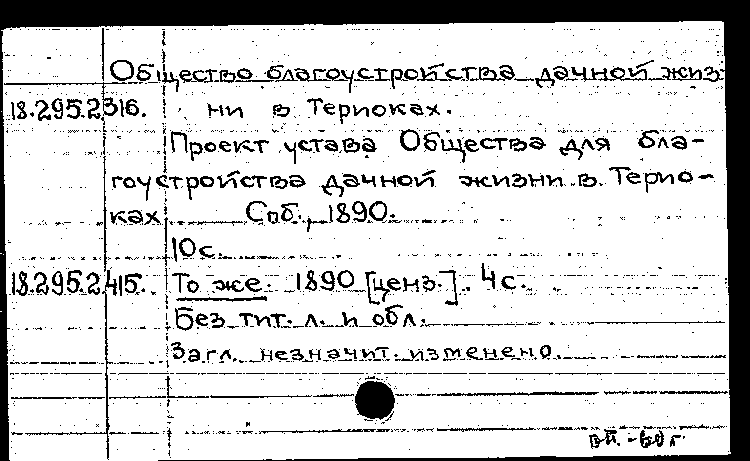 Общество благоустройства дачной жиз-
18.295.2.316. ни в Териоках.
Проект устава Общества для бла-
гоустройства дачной жизни в Терио-
ках Спб., 1890.
10 с.
18.295.2.415. То же. 1890 [ценз.]. 4 с.
Без тит. л. и обл.
Загл. незначит. изменено.